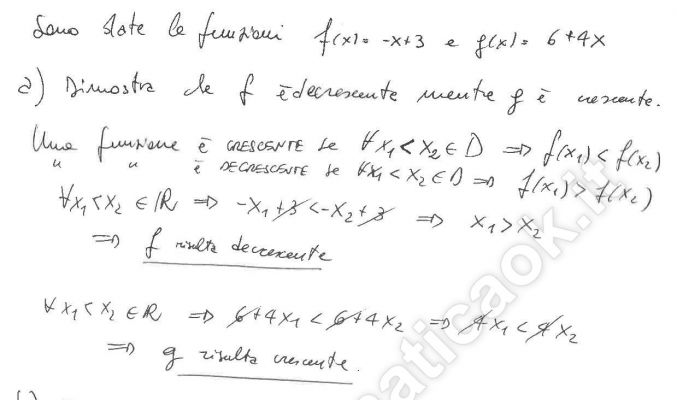 Sono date le funzioni f(x)= -x+3 e g(x)= 6+4x
a) Dimostra che f è decrescente mentre g è crescente.
Una funzione è CRESCENTE se ∀x₁<x₂∈D ⇒ f(x₁)<f(x₂)
" " è DECRESCENTE se ∀x₁<x₂∈D ⇒ f(x₁)>f(x₂)
∀x₁<x₂∈ℝ ⇒ -x₁+3<-x₂+3 ⇒ x₁>x₂
⇒ f risulta decrescente
∀x₁<x₂∈ℝ ⇒ 6+4x₁<6+4x₂ ⇒ 4x₁<4x₂
⇒ g risulta crescente.
aticaok.it